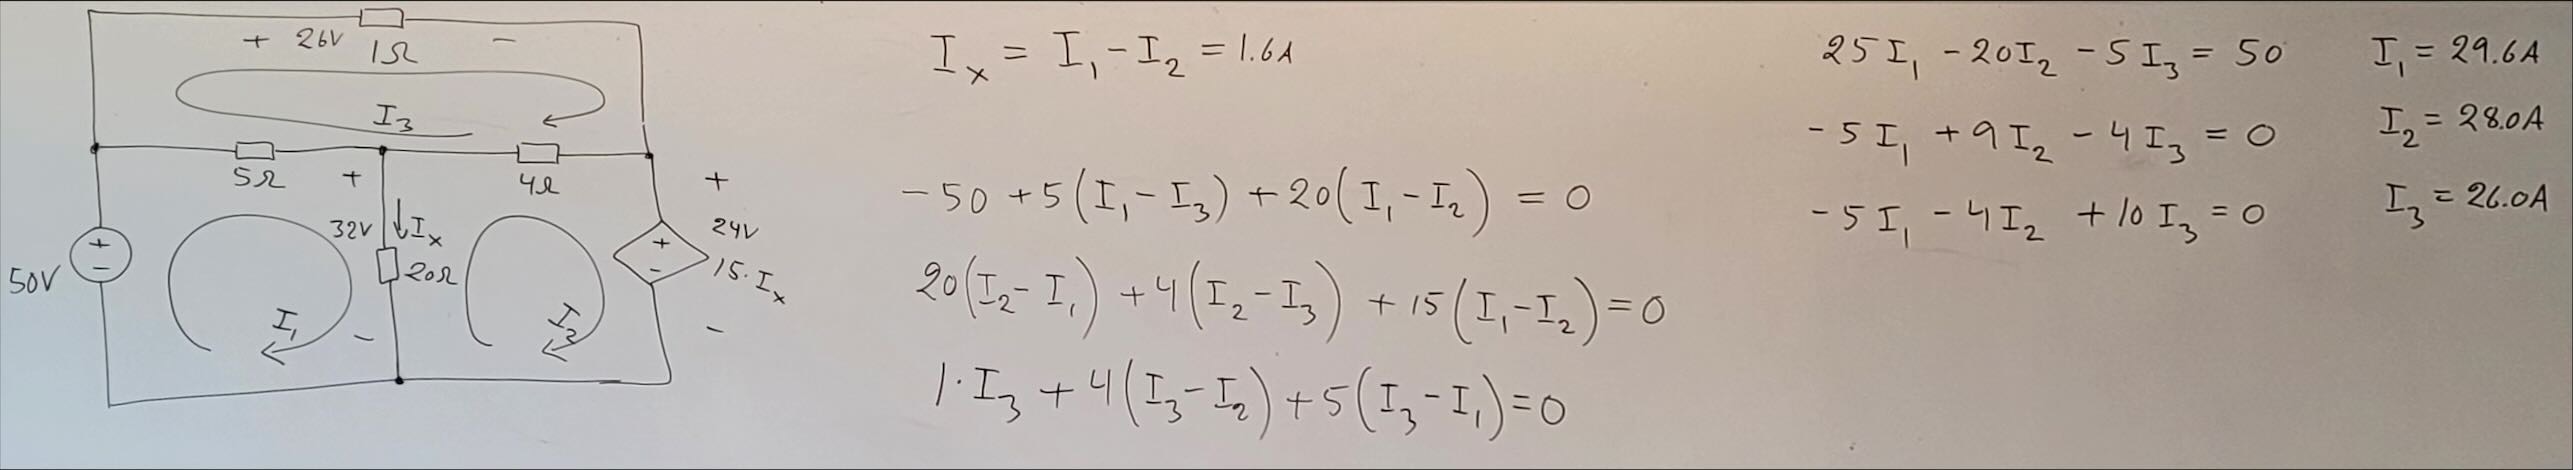 + 26V -
1Ω
I₃
5Ω + 4Ω +
50V + - 32V Iₓ 20Ω + - 24V 15·Iₓ
I₁ - I₂ -
Iₓ = I₁ - I₂ = 1.6A
-50 + 5(I₁ - I₃) + 20(I₁ - I₂) = 0
20(I₂ - I₁) + 4(I₂ - I₃) + 15(I₁ - I₂) = 0
1·I₃ + 4(I₃ - I₂) + 5(I₃ - I₁) = 0
25I₁ - 20I₂ - 5I₃ = 50
-5I₁ + 9I₂ - 4I₃ = 0
-5I₁ - 4I₂ + 10I₃ = 0
I₁ = 29.6A
I₂ = 28.0A
I₃ = 26.0A